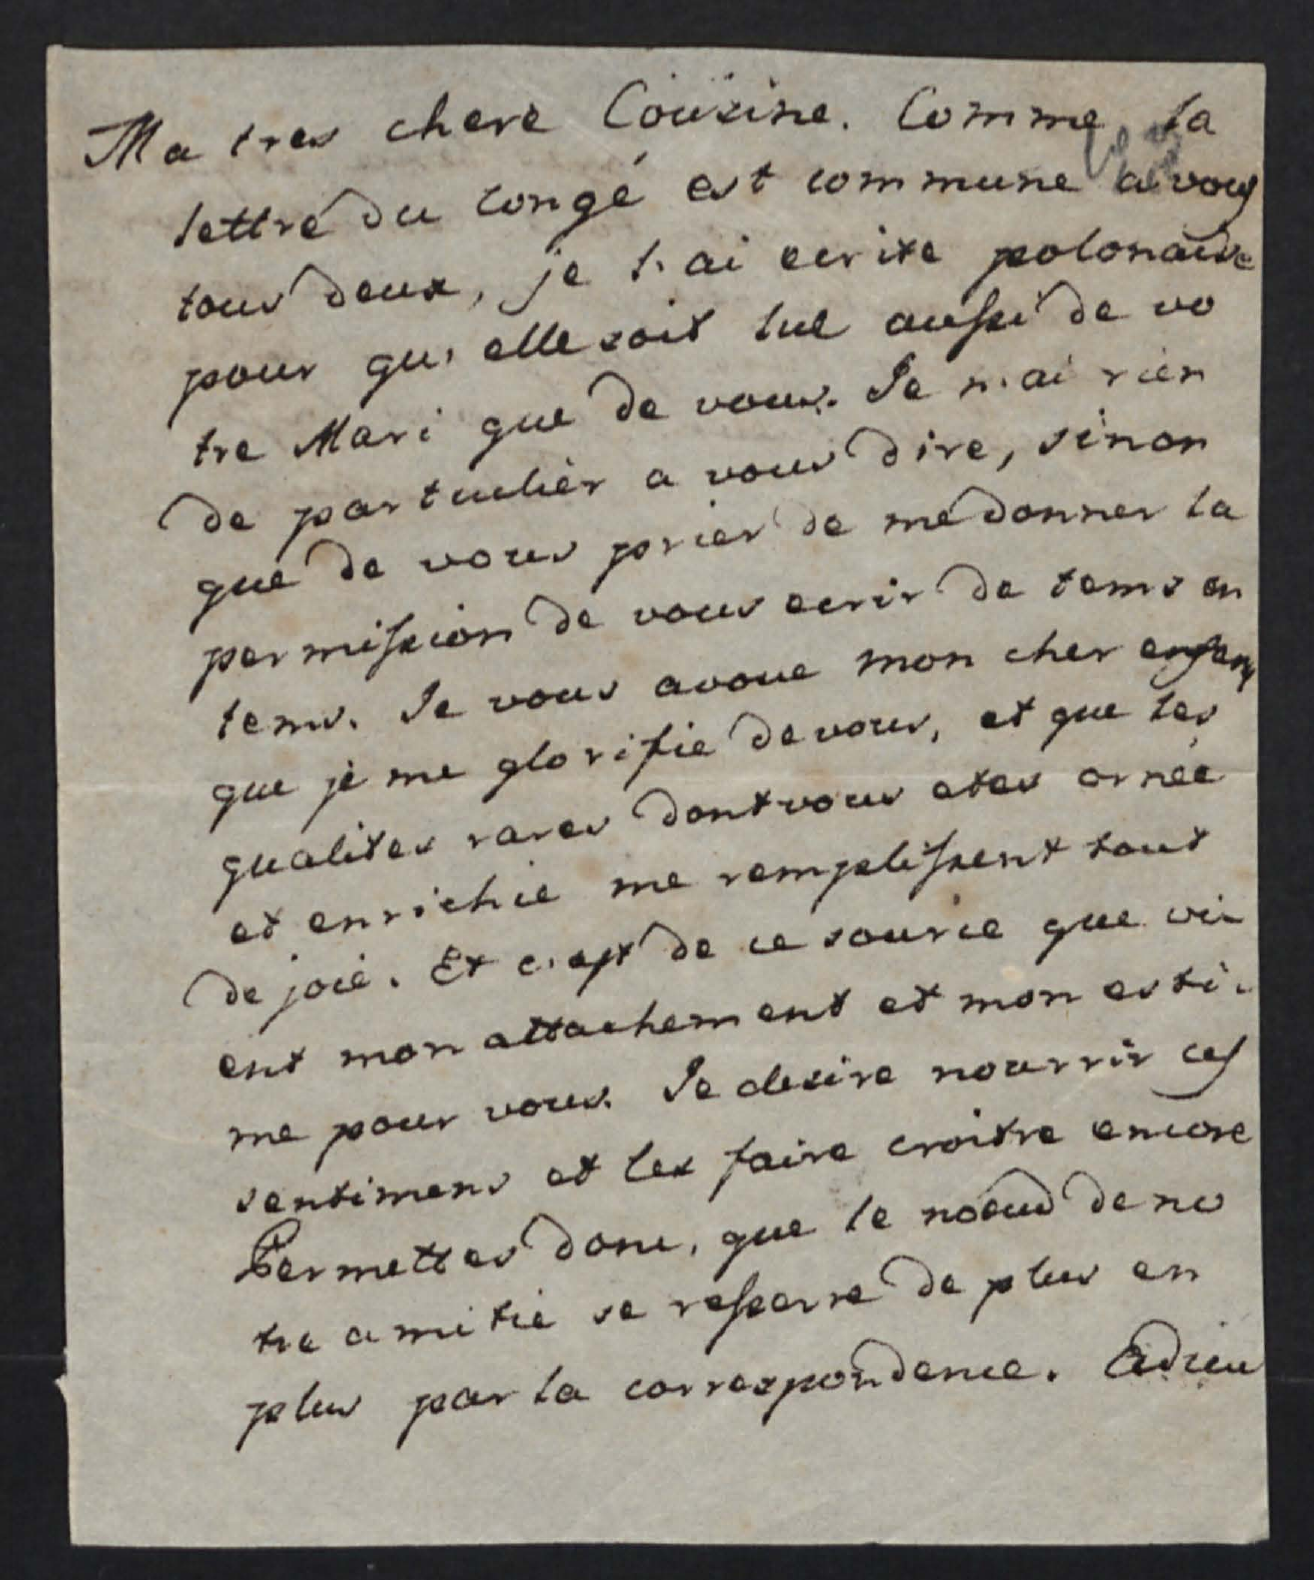 Ma tres chere Cousine. Comme la
lettre du congé est commune a vous
tous deux, je l'ai ecrite polonaise
pour qu'elle soit lue aussi de vo
tre Mari que de vous. Je n'ai rien
de particulier a vous dire, sinon
que de vous prier de me donner la
permission de vous ecrir de tems en
tems. Je vous avoue mon cher enfant
que je me glorifie de vous, et que les
qualites rares dont vous etes ornée
et enrichie me remplissent tout
de joie. Et c'est de ce source que vi-
ent mon attachement et mon esti-
me pour vous. Je desire nourrir ces
sentimens et les faire croitre encore
Permettes donc, que le noeud de no
tre amitié se resserre de plus en
plus par la correspondence. Adieu